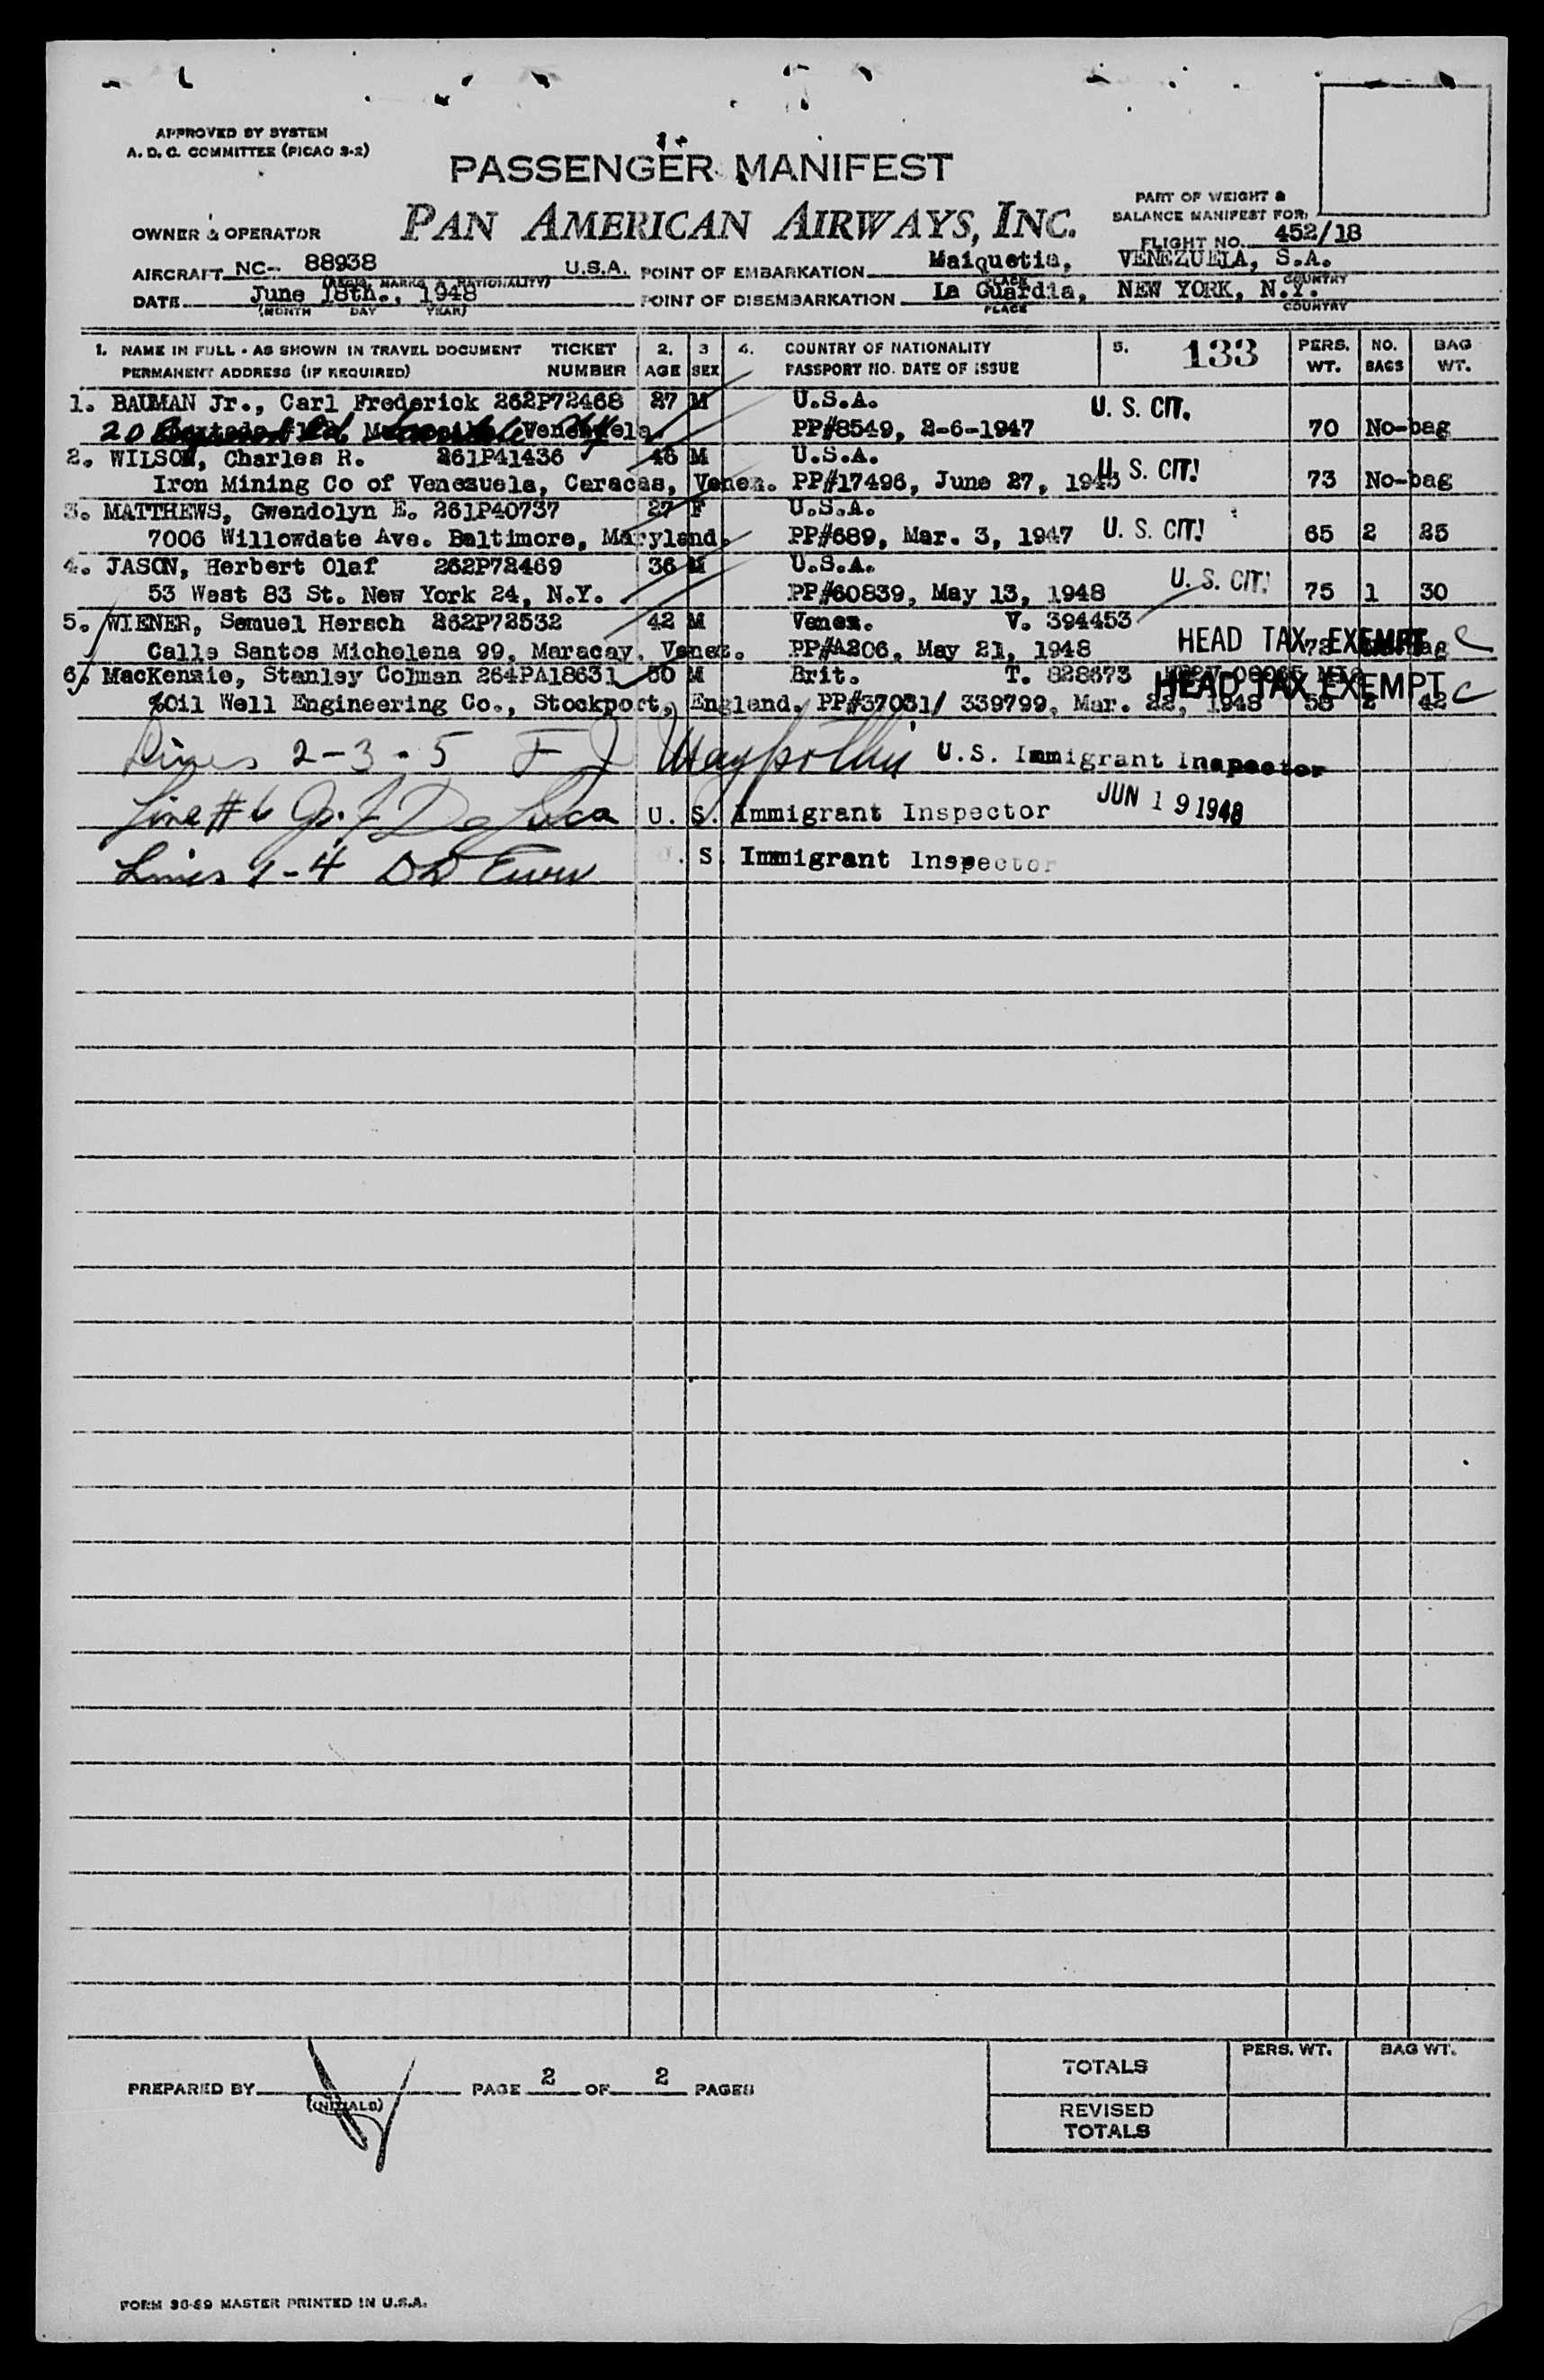 APPROVED BY SYSTEM
A. D. C. COMMITTEE (PICAO 3-2)
PASSENGER MANIFEST
PART OF WEIGHT &
BALANCE MANIFEST FOR:
OWNER & OPERATOR PAN AMERICAN AIRWAYS, INC.
FLIGHT NO. 452/18
AIRCRAFT NC- 88938 U.S.A. POINT OF EMBARKATION Maiquetia, VENEZUELA, S.A.
(REGIS. MARKS & NATIONALITY) PLACE COUNTRY
DATE June 18th., 1948 POINT OF DISEMBARKATION La Guardia, NEW YORK, N.Y.
(MONTH DAY YEAR) PLACE COUNTRY
1. NAME IN FULL - AS SHOWN IN TRAVEL DOCUMENT TICKET 2. 3 4. COUNTRY OF NATIONALITY 5. 133 PERS. NO. BAG
PERMANENT ADDRESS (IF REQUIRED) NUMBER AGE SEX PASSPORT NO. DATE OF ISSUE WT. BAGS WT.
1. BAUMAN Jr., Carl Frederick 262P72468 27 M U.S.A. U. S. CIT.
20 Venezuela. PP#8549, 2-6-1947 70 No-bag
2. WILSON, Charles R. 261P41436 46 M U.S.A.
Iron Mining Co of Venezuela, Caracas, Venez. PP#17496, June 27, 1945 U. S. CIT! 73 No-bag
3. MATTHEWS, Gwendolyn E. 261P40737 27 F U.S.A.
7006 Willowdate Ave. Baltimore, Maryland. PP#689, Mar. 3, 1947 U. S. CIT! 65 2 25
4. JASON, Herbert Olaf 262P72469 36 M U.S.A.
53 West 83 St. New York 24, N.Y. PP#60839, May 13, 1948 U. S. CIT! 75 1 30
5. WIENER, Samuel Hersch 262P72532 42 M Venez. V. 394453
Calle Santos Michelena 99, Maracay, Venez. PP#A206, May 21, 1948 HEAD TAX EXEMPT
6. MacKenzie, Stanley Colman 264PA18631 50 M Brit. T. 828673
%Oil Well Engineering Co., Stockport, England. PP#37031/ 339799, Mar. 22, 1948 HEAD TAX EXEMPT 58 2 42
Lines 2-3-5 F J U.S. Immigrant Inspector
Line #6 De Luca U. S. Immigrant Inspector JUN 19 1948
Lines 1-4 S. Immigrant Inspector
PREPARED BY PAGE 2 OF 2 PAGES
(INITIALS)
TOTALS PERS. WT. BAG WT.
REVISED
TOTALS
FORM 36-89 MASTER PRINTED IN U.S.A.